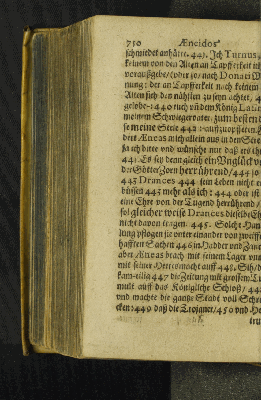 750 Æneidos
schmiedet anhätte. 441. Ich Turnus,
keinem von den Alten an Tapfferkeit
vorauß gebe/ (oder 30/ nach Donati
nung; der an Tapfferkeit nach keinem
Alten sich den nähsten zu seyn achtet, 4
gelobe-1440 euch und dem König Lati
meinem Schwiegervater zum besten
se meine Seele 442 aufzuopfferen.
dert Æneas mich allein aus in den
Ja ich bitte und wünsche nur daß er es
443. Es sey denn gleich ein Unglück
der Götter Zorn herrührend/ 444 so
445 Drances 444 sein Leben nicht
büssen 443 mehr als ich: 444 oder ist
eine Ehre von der Tugend herrührend/
sol gleicher weise Drances dieselbe Eh
nicht davon tragen. 445. Solche Han
lung pflogen sie unter einander von zweiffel
hafften Sachen 446 in Hadder und Zanc
aber Æneas brach mit seinem Lager
mit seiner Heeresmacht auff 448. Sih/
kam eilig 447 die Zeitung mit grossem Tu
mult auff das Königliche Schloß/ 44
und machte die gantze Stadt voll Schre
cken: 449 daß die Trojaner/ 450 und He